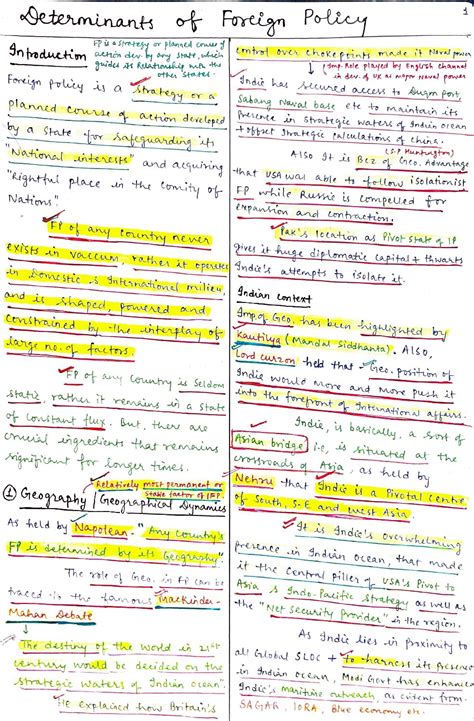 Determinants of Foreign Policy
1
Introduction
FP is a strategy or planned course of
action dev by any state, which
guides its Relationship with the
other states.
Foreign policy is a strategy or a
planned course of action developed
by a State for safeguarding its
"National interests" and acquiring
"Rightful place in the Comity of
Nations".
FP of any country never
exists in vaccum, rather it operates
in Domestic & International milieu,
and is shaped, powered and
constrained by the interplay of
large no. of factors.
FP of any Country is Seldom
static, rather it remains in a state
of constant flux. But, there are
crucial ingredients that remains
significant for longer times.
Relatively most permanent or
stable factor of IFP
① Geography / Geographical Dynamics
As held by Napolean - "Any Country's
FP is determined by its Geography"
The role of Geo. in FP can be
traced to the famous Mackinder-
Mahan Debate
"The destiny of the world in 21st
century would be decided on the
strategic waters of Indian ocean"
He explained how Britain's
control over chokepoints made it Naval power
(Imp. Role played by English channel
in dev. of UK as major naval power)
India has secured access to Duqm port,
Sabang Naval base etc to maintain its
presence in strategic waters of Indian ocean
+ offset strategic calculations of china.
(S.P Huntington)
Also It is Bcz of Geo. Advantage
that USA was able to follow isolationist
FP while Russia is compelled for
expansion and contraction.
Pak's location as Pivot State of IP
gives it huge diplomatic capital + thwarts
India's attempts to isolate it.
Indian context
Imp. of Geo. has been highlighted by
Kautilya (Mandal Siddhanta). Also,
Lord curzon held that - Geo. position of
India would more and more push it
into the forefront of International affairs.
India, is, basically, a sort of
Asian bridge i.e, is situated at the
crossroads of Asia, as held by
Nehru that India is a Pivotal Centre
of South, S-E and west Asia.
It is India's overwhelming
presence in Indian Ocean, that made
it the Central piller of USA's Pivot to
Asia & Indo-Pacific Strategy as well as
the "Net Security Provider" in the region.
As India lies in proximity to
all Global SLOC + to harness its Presence
in Indian Ocean, Modi Govt has enhanced
India's maritime outreach, as evident from
SAGAR, IORA, Blue economy etc.